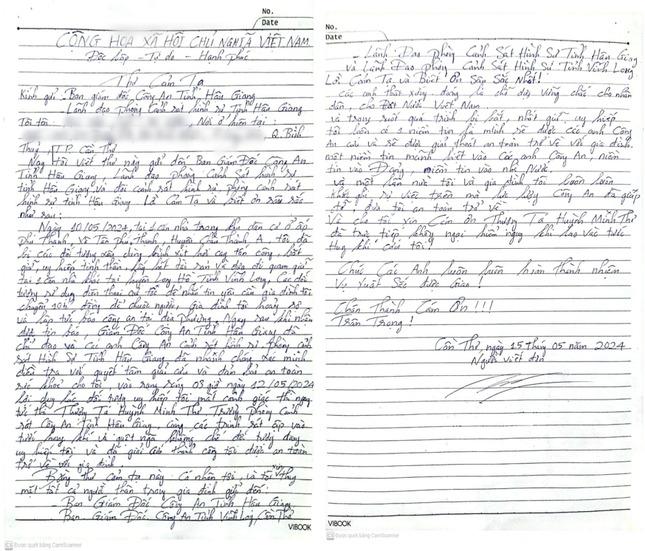 No.
Date
CỘNG HÒA XÃ HỘI CHỦ NGHĨA VIỆT NAM
Độc lập - Tự do - Hạnh phúc
Thư Cảm Tạ
Kính gửi: - Ban giám đốc Công An Tỉnh Hậu Giang
- Lãnh đạo phòng Cảnh sát hình sự Tỉnh Hậu Giang
Tôi tên Nơi ở hiện tại:
Q. Bình
Thuỷ, TP. Cần Thơ
Nay Tôi viết thư này gửi đến Ban Giám Đốc Công An
Tỉnh Hậu Giang, Lãnh đạo phòng Cảnh Sát Hình sự
tỉnh Hậu Giang và đội cảnh sát hình sự phòng cảnh sát
hình sự tỉnh Hậu Giang Lời Cảm Tạ và biết ơn sâu sắc
như sau:
Ngày 10/05/2024, tại 1 căn nhà trong khu dân cư ở ấp
Phú Thạnh, xã Tân Phú Thạnh, Huyện Châu Thành A, tôi đã
bị các đối tượng xông dùng bình xịt hơi cay tấn công, bắt
giữ, uy hiếp tinh thần, tài sản và đưa đi giam giữ
tại 1 căn nhà khác tại huyện Long Hồ, Tỉnh Vĩnh Long, Các đối
tượng sử dụng điện thoại của tôi để nhắn tin yêu cầu gia đình tôi
chuyển đồng để chuộc người, gia đình tôi hoảng sợ
và lập tức báo công an tại địa phương, Ngay sau khi nhận
được tin báo Giám Đốc Công An Tỉnh Hậu Giang đã
chỉ đạo và các anh Công An Cảnh sát hình sự phòng cảnh
sát Hình Sự Tỉnh Hậu Giang đã nhanh chóng xác minh
điều tra với quyết tâm giải cứu và đảm bảo an toàn
sức khoẻ cho tôi, và rạng sáng 03 giờ ngày 12/05/2024
lợi dụng lúc đối tượng uy hiếp tôi mất cảnh giác thì ngay
tức thì Thượng Tá Huỳnh Minh Thơ Trưởng Phòng Cảnh
sát Công An Tỉnh Hậu Giang, cùng các trinh sát ập vào
tước hung khí và quật ngã khống chế đối tượng đang
uy hiếp tôi và đã giải cứu thành công tôi được an toàn
trở về với gia đình.
Bằng thư cảm tạ này Cá nhân tôi, và tôi thay
mặt tất cả người thân trong gia đình gửi đến:
- Ban Giám Đốc Công An Tỉnh Hậu Giang
Ban Giám Đốc Công An Tỉnh Vĩnh Long, Cần Thơ
VIBOOK
Được quét bằng CamScanner
No.
Date
- Lãnh Đạo phòng Cảnh Sát Hình Sự Tỉnh Hậu Giang
và Lãnh Đạo phòng Cảnh Sát Hình Sự Tỉnh Vĩnh Long
Lời Cảm Tạ và Biết Ơn Sâu Sắc Nhất!
Các anh thật xứng đáng là chỗ dựa vững chắc cho nhân
dân, cho Đất Nước Việt Nam
và trong suốt quá trình bị bắt, nhốt giữ, uy hiếp
tôi luôn có 1 niềm tin là mình sẽ được các anh Công
An cứu và sẽ được giải thoát an toàn trở về với gia đình.
một niềm tin mãnh liệt vào Các anh Công An, niềm
tin vào Đảng, niềm tin vào nhà Nước.
và một lần nữa tôi và gia đình tôi luôn luôn
khắc ghi sự việc trên mà lực lượng Công An đã giúp
để tôi được an toàn trở về.
Và cho tôi xin Cảm ơn Thượng Tá Huỳnh Minh Thơ
đã trực tiếp không ngại hiểm nguy khi lao vào tước
Hung khí cứu tôi!
Chúc Các Anh luôn luôn hoàn thành nhiệm
Vụ Xuất Sắc được Giao!
Chân Thành Cảm Ơn!!!
Trân Trọng!
Cần Thơ, ngày 15 tháng 05 năm 2024
Người viết đơn
VIBOOK
Được quét bằng CamScanner